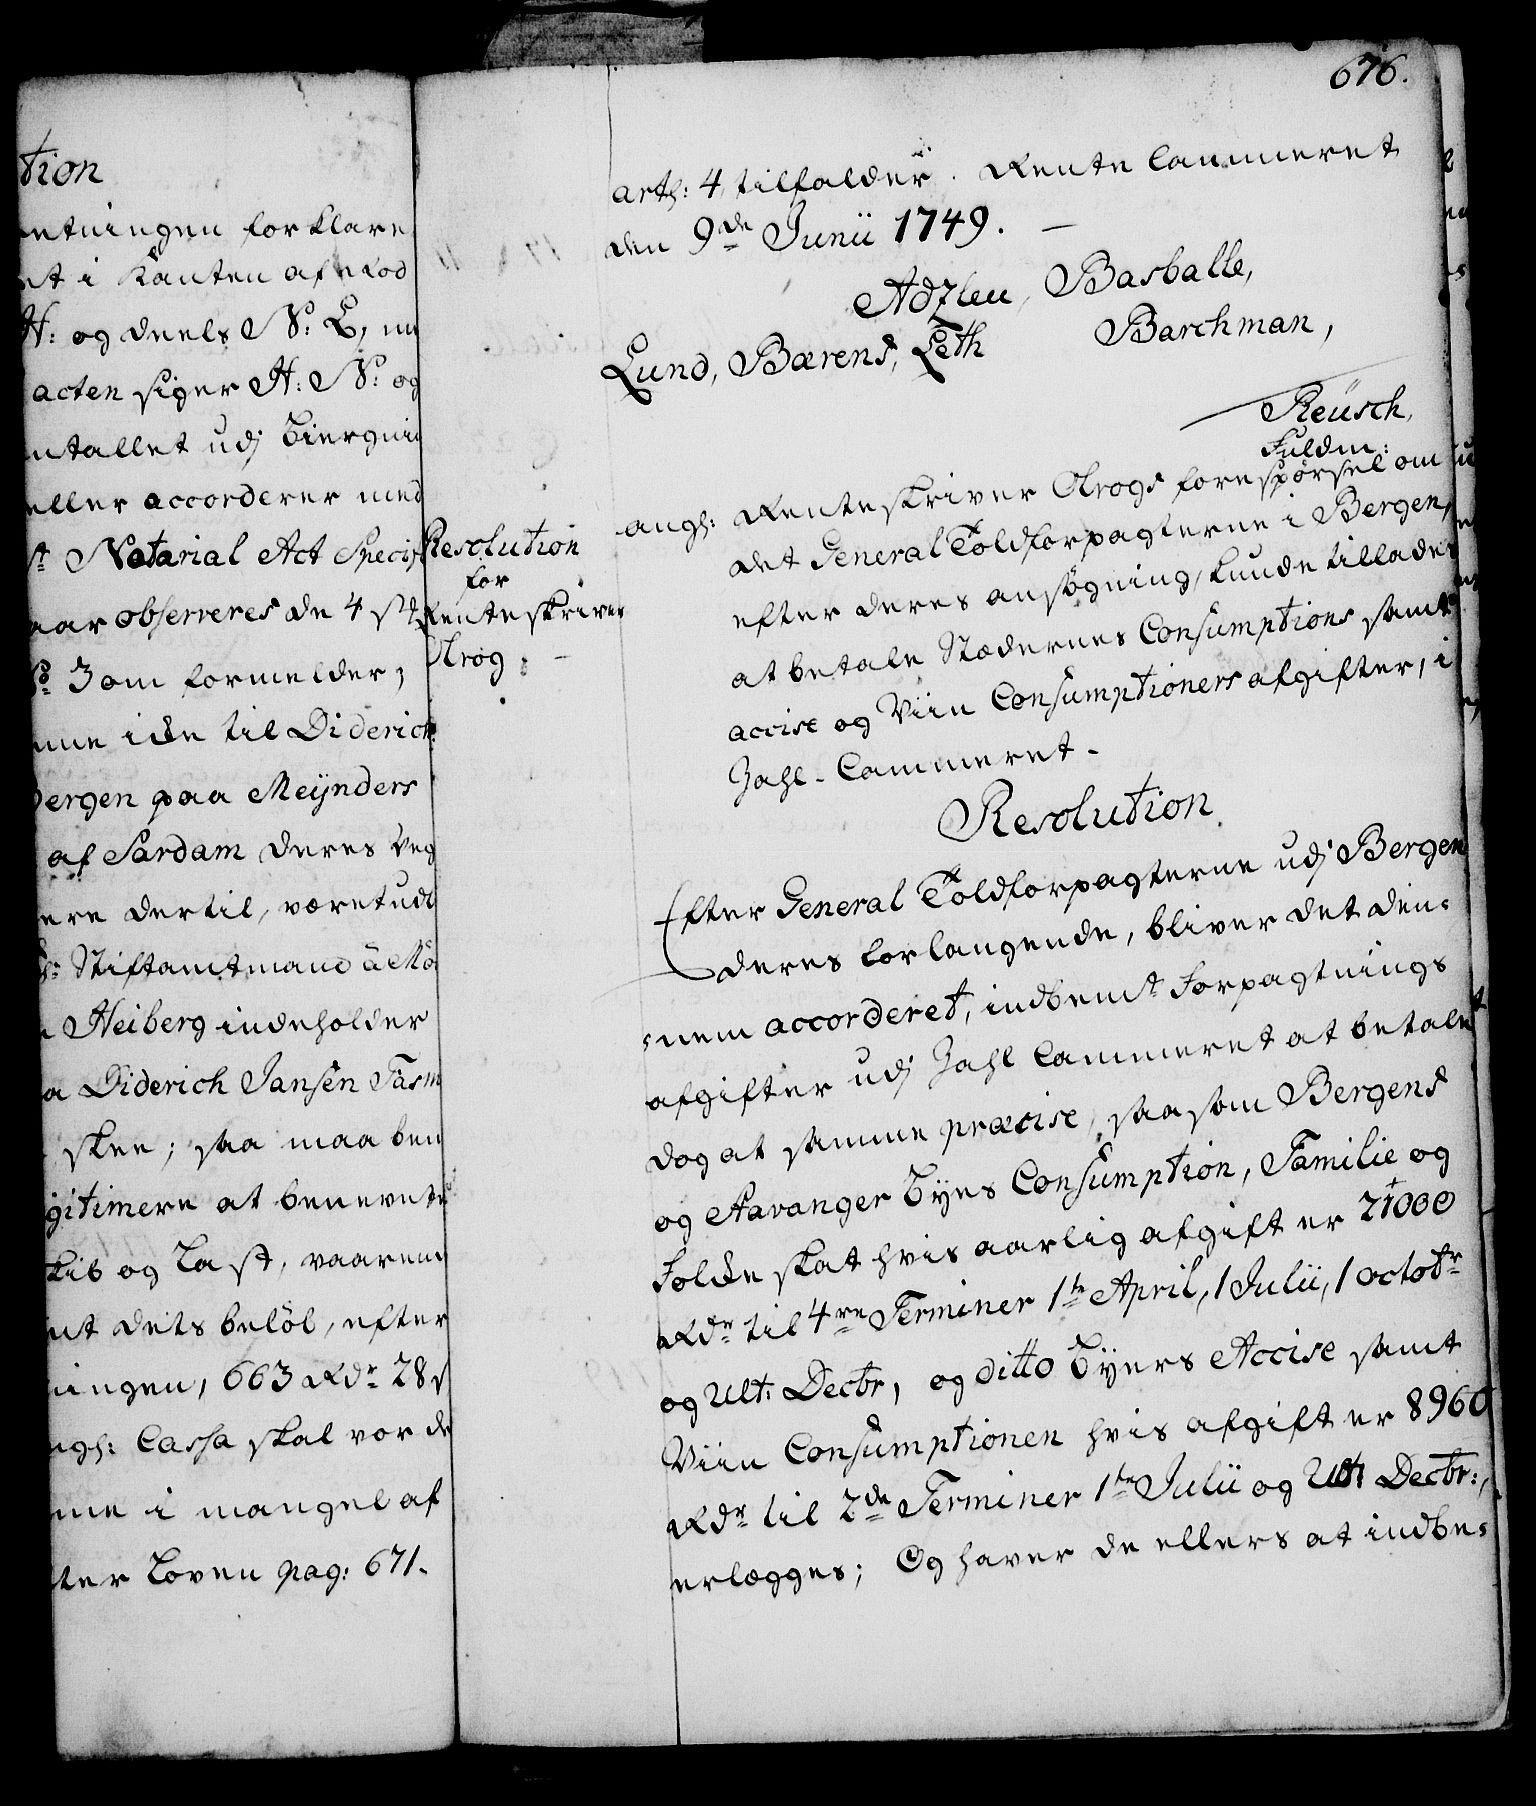 tion
etningen forklare
et i Kanten af rod
H: og deels N: L, m
acten siger H: N: og
ntallet udj biergnin
eller accorderer med
st Notarial Act Speci
aar observeres de 4 st
No 3 om formelder;
nne icke til Diderich
Bergen paa Meijnders
af Sardam deres veg
ere dertil, været udl
Hr: Stiftamtmand
Heiberg indeholder
a Diderich Jansen Tasm
skee; saa maa ben
gitimere at benevnte
kib og Last, vaaren
nt dets beløb, efter
ningen, 663 Rdr 28 s
ngl: Cassa skal vorde
me i mangel af
ter Loven pag: 671.
676.
artl: 4 tilfalder. Rente Cammeret
den 9de Junii 1749. —
Adzleu, Basballe,
Lund, Bærens, Leth Barchman,
Reüsch,
Fuldm:
Resolution
for
Renteskriver
Krog. –
angl: Renteskriver Krogs forespørsel om
det General Toldforpagterne i Bergen,
efter deres ansøgning, kunde tillades
at betale Stædernes Consumptions samt
accise og Viin Consumptioners afgifter, i
Zahl-Cammeret-
Resolution
Efter General Toldforpagterne udj Bergen
deres forlangende, bliver det den-
nem accorderet, indbemt Forpagtnings
afgifter udj Zahl Cammeret at betale
dog at samme præcise, saasom Bergens
og Stavanger Byes Consumption, Familie og
Folcke skat hvis aarlig afgift er 21000
Rdr til 4re Terminer 1te April, 1 Julii, 1 octobr
og Ult: Decbr, og ditto Byers Accise samt
Viin Consumptionen hvis afgift er 8960
Rdr til 2de Terminer 1te Julii og Ult: Decbr:,
erlægges; Og haver de ellers at indbe-